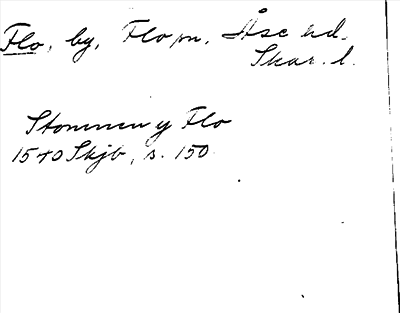 Flo, by, Flo sn, Åse hd.
Skar. l.
Stommen y Flo
1540 Skjb, s. 150